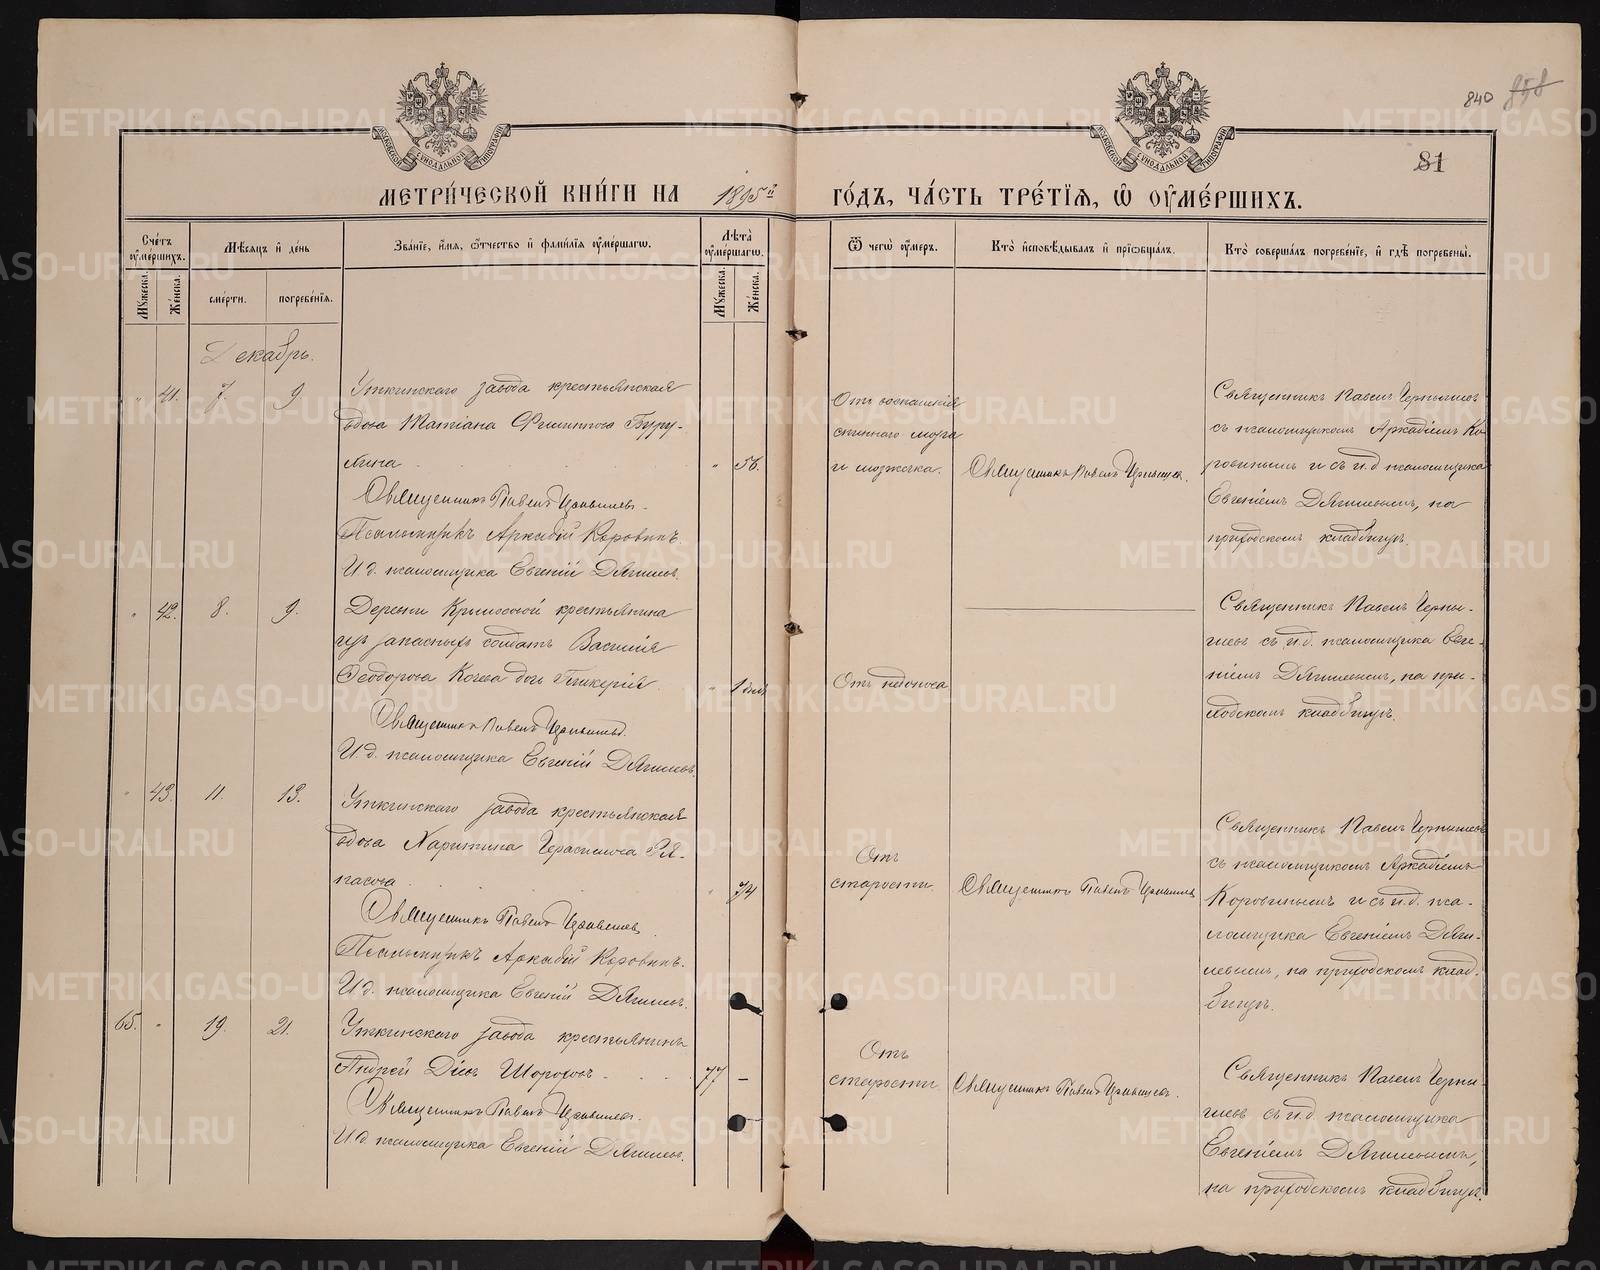 840 858
81
МЕТРИ́ЧЕСКОЙ КНИ́ГИ НА 1895й ГО́ДЪ, ЧА́СТЬ ТРЕ́ТІЯ, Ѡ ОУМЕ́РШИХЪ.
Сче́тъ оуме́ршихъ.
Мѣсяцъ и де́нь
Зва́ніе, и́мя, ѻтчество и фами́лія оуме́ршагѡ.
Лѣта̀ оуме́ршагѡ.
Ѿ чегѡ̀ оу́меръ.
Кто̀ исповѣ́дывалъ и пріѡбща́лъ.
Кто̀ соверша́лъ погребе́ніе, и гдѣ̀ погребены̀.
Мꙋ́жеска.
Же́нска.
сме́рти.
погребе́нія.
Мꙋ́жеска.
Же́нска.
Декабрь.
" 41. 7. 9.
Уткинскаго завода крестьянская
вдова Татіана Филиппова Буру-
лина " 56.
Священникъ Павелъ Чернышевъ.
Псаломщикъ Аркадій Коровинъ.
И. д. псаломщика Евгеній Дягилевъ.
Отъ воспаленія
спиннаго мозга
и мозжечка.
Священникъ Павелъ Чернышевъ.
Священникъ Павелъ Чернышевъ
съ псаломщикомъ Аркадіемъ Ко-
ровинымъ и съ и. д. псаломщика
Евгеніемъ Дягилевымъ, на
приходскомъ кладбищѣ.
" 42. 8. 9.
Деревни Крылосовой крестьянина
изъ запасныхъ солдатъ Василія
Ѳеодорова Кочева дочь Гликерія. " 1 дня
Священникъ Павелъ Чернышевъ.
И. д. псаломщика Евгеній Дягилевъ.
Отъ недоноса
Священникъ Павелъ Черны-
шевъ съ и. д. псаломщика Евге-
ніемъ Дягилевымъ, на при-
ходскомъ кладбищѣ.
" 43. 11. 13.
Уткинскаго завода крестьянская
вдова Харитина Герасимова Ря-
пасова " 74
Священникъ Павелъ Чернышевъ
Псаломщикъ Аркадій Коровинъ.
И. д. псаломщика Евгеній Дягилевъ.
Отъ
старости.
Священникъ Павелъ Чернышевъ
Священникъ Павелъ Чернышевъ
съ псаломщикомъ Аркадіемъ
Коровинымъ и съ и. д. пса-
ломщика Евгеніемъ Дяги-
левымъ, на приходскомъ клад-
бищѣ.
65. " 19. 21.
Уткинскаго завода крестьянинъ
Андрей Діевъ Шороховъ. 77 –
Священникъ Павелъ Чернышевъ.
И. д. псаломщика Евгеній Дягилевъ.
Отъ
старости
Священникъ Павелъ Чернышевъ.
Священникъ Павелъ Черны-
шевъ съ и. д. псаломщика
Евгеніемъ Дягилевымъ,
на приходскомъ кладбищѣ.
METRIKI.GASO-URAL.RU